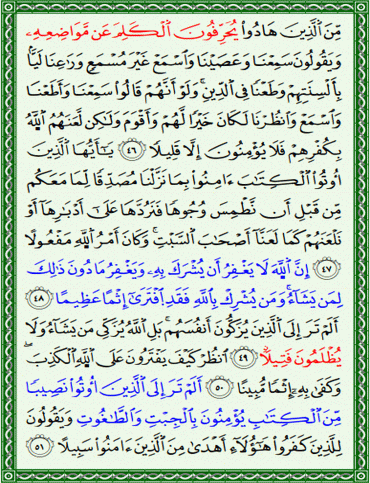 مِّنَ ٱلَّذِينَ هَادُوا۟ يُحَرِّفُونَ ٱلْكَلِمَ عَن مَّوَاضِعِهِۦ
وَيَقُولُونَ سَمِعْنَا وَعَصَيْنَا وَٱسْمَعْ غَيْرَ مُسْمَعٍ وَرَٰعِنَا لَيًّۢا
بِأَلْسِنَتِهِمْ وَطَعْنًا فِى ٱلدِّينِ ۚ وَلَوْ أَنَّهُمْ قَالُوا۟ سَمِعْنَا وَأَطَعْنَا
وَٱسْمَعْ وَٱنظُرْنَا لَكَانَ خَيْرًا لَّهُمْ وَأَقْوَمَ وَلَٰكِن لَّعَنَهُمُ ٱللَّهُ
بِكُفْرِهِمْ فَلَا يُؤْمِنُونَ إِلَّا قَلِيلًا ٤٦ يَٰٓأَيُّهَا ٱلَّذِينَ
أُوتُوا۟ ٱلْكِتَٰبَ ءَامِنُوا۟ بِمَا نَزَّلْنَا مُصَدِّقًا لِّمَا مَعَكُم
مِّن قَبْلِ أَن نَّطْمِسَ وُجُوهًا فَنَرُدَّهَا عَلَىٰٓ أَدْبَارِهَآ أَوْ
نَلْعَنَهُمْ كَمَا لَعَنَّآ أَصْحَٰبَ ٱلسَّبْتِ ۚ وَكَانَ أَمْرُ ٱللَّهِ مَفْعُولًا
٤٧ إِنَّ ٱللَّهَ لَا يَغْفِرُ أَن يُشْرَكَ بِهِۦ وَيَغْفِرُ مَا دُونَ ذَٰلِكَ
لِمَن يَشَآءُ ۚ وَمَن يُشْرِكْ بِٱللَّهِ فَقَدِ ٱفْتَرَىٰٓ إِثْمًا عَظِيمًا ٤٨
أَلَمْ تَرَ إِلَى ٱلَّذِينَ يُزَكُّونَ أَنفُسَهُم ۚ بَلِ ٱللَّهُ يُزَكِّى مَن يَشَآءُ وَلَا
يُظْلَمُونَ فَتِيلًا ٤٩ ٱنظُرْ كَيْفَ يَفْتَرُونَ عَلَى ٱللَّهِ ٱلْكَذِبَ ۖ
وَكَفَىٰ بِهِۦٓ إِثْمًا مُّبِينًا ٥٠ أَلَمْ تَرَ إِلَى ٱلَّذِينَ أُوتُوا۟ نَصِيبًا
مِّنَ ٱلْكِتَٰبِ يُؤْمِنُونَ بِٱلْجِبْتِ وَٱلطَّٰغُوتِ وَيَقُولُونَ
لِلَّذِينَ كَفَرُوا۟ هَٰٓؤُلَآءِ أَهْدَىٰ مِنَ ٱلَّذِينَ ءَامَنُوا۟ سَبِيلًا ٥١